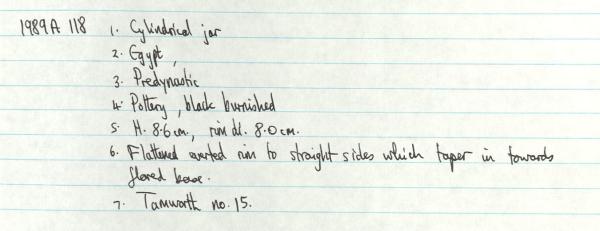 1989A 118 1. Cylindrical jar
2. Egypt,
3. Predynastic
4. Pottery, black burnished
5. H. 8.6cm., rim di. 8.0cm.
6. Flattened everted rim to straight sides which taper in towards
flared base.
7. Tamworth no. 15.